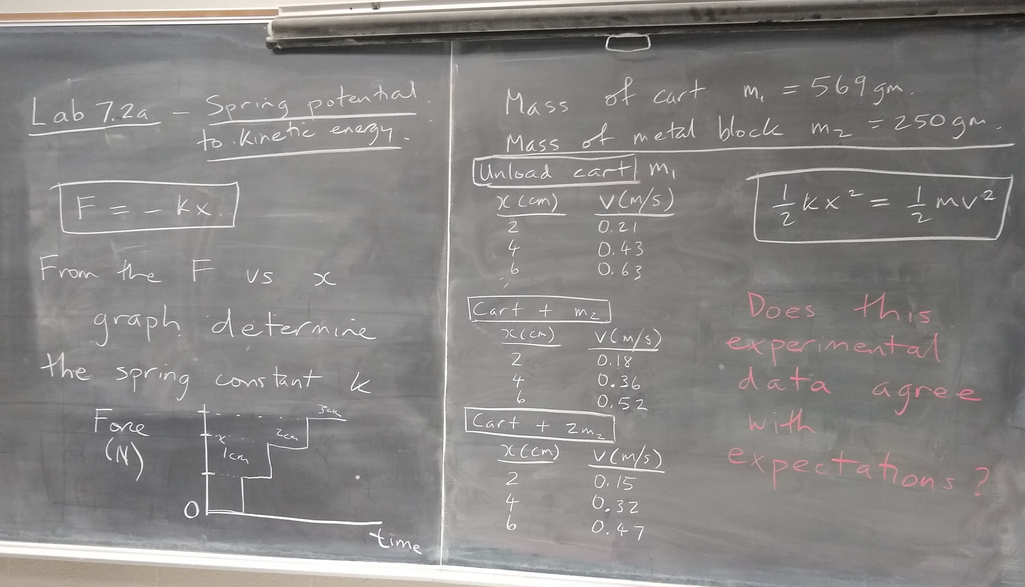 Lab 7.2a – Spring potential
to kinetic energy.
F = - kx.
From the F vs x
graph determine
the spring constant k
Force
(N)
1cm
2cm
3cm
0
time
Mass of cart m₁ = 569 gm.
Mass of metal block m₂ = 250 gm.
Unload cart m₁
x (cm) V (m/s)
2 0.21
4 0.43
6 0.63
½ kx² = ½ mv²
Cart + m₂
x (cm) V (m/s)
2 0.18
4 0.36
6 0.52
Cart + 2m₂
x (cm) V (m/s)
2 0.15
4 0.32
6 0.47
Does this
experimental
data agree
with
expectations?